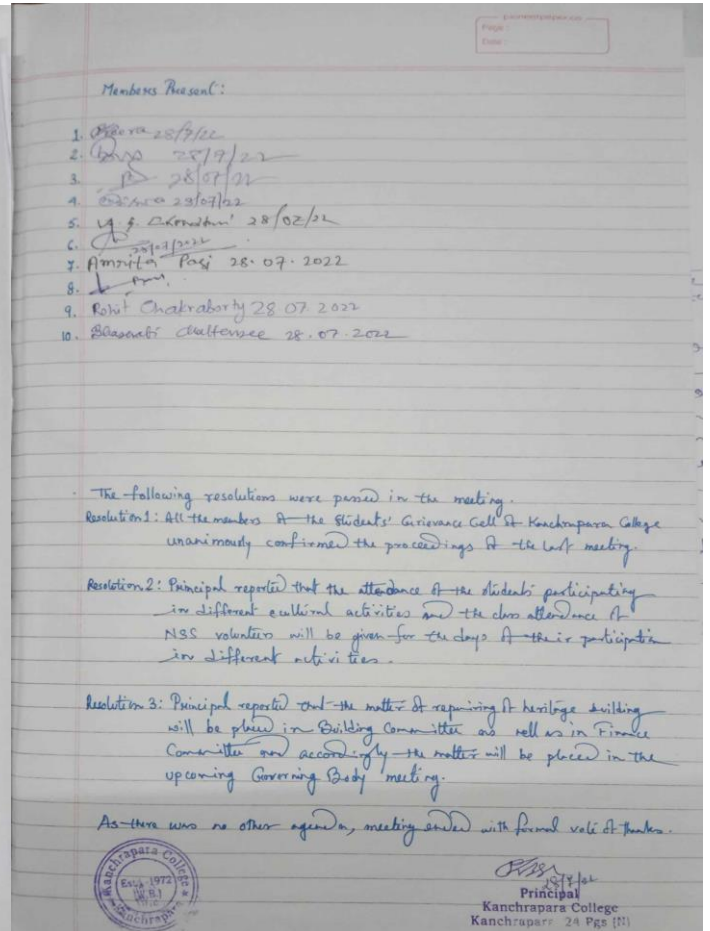 Page :
Date :
Members Present :
1. 28/7/22
2. 28/7/22
3. 28/07/22
4. 28/07/22
5. 28/07/22
6. 28/07/2022
7. Amrita Pasi 28.07.2022
8.
9. Rohit Chakraborty 28 07 2022
10. Chatterjee 28.07.2022
The following resolutions were passed in the meeting.
Resolution 1: All the members of the Students' Grievance Cell of Kanchrapara College
unanimously confirmed the proceedings of the last meeting.
Resolution 2: Principal reported that the attendance of the students participating
in different cultural activities and the class attendance of
NSS volunteers will be given for the days of their participation
in different activities.
Resolution 3: Principal reported that the matter of repairing of heritage building
will be place in Building Committee as well as in Finance
Committee and accordingly the matter will be placed in the
upcoming Governing Body meeting.
As there was no other agenda, meeting ended with formal vote of thanks.
Kanchrapara College
Estd. 1972
(W.B.)
Kanchrapara
28/7/22
Principal
Kanchrapara College
Kanchrapara 24 Pgs (N)